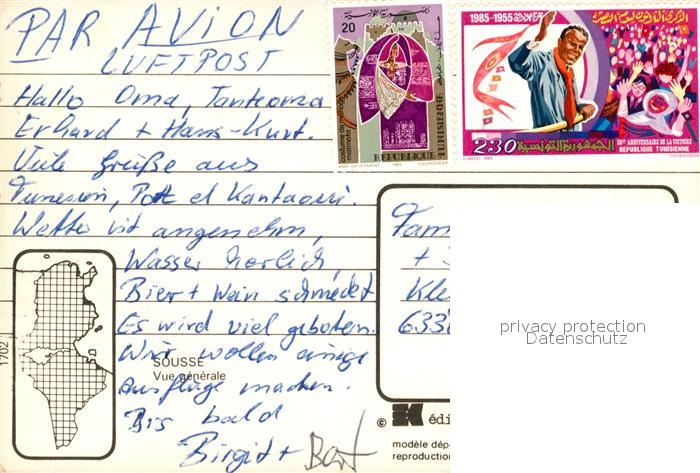 PAR AVION
LUFTPOST
Hallo Oma, Tanteoma
Erhard + Hans-Kurt.
Viele Grüße aus
Tunesien, Port el Kantaoui.
Wetter ist angenehm,
Wasser herlich,
Bier + Wein schmeckt
Es wird viel geboten.
Wir wollen einige
Ausflüge machen.
Bis bald
Birgit +
SOUSSE
Vue générale
1702
20
REPUBLIQUE TUNISIENNE
1985-1955
230 الجمهورية التونسية
30ème ANNIVERSAIRE DE LA VICTOIRE
REPUBLIQUE TUNISIENNE
Fam
+
Kle
633
privacy protection
Datenschutz
© K édi
modèle dép
reproduction